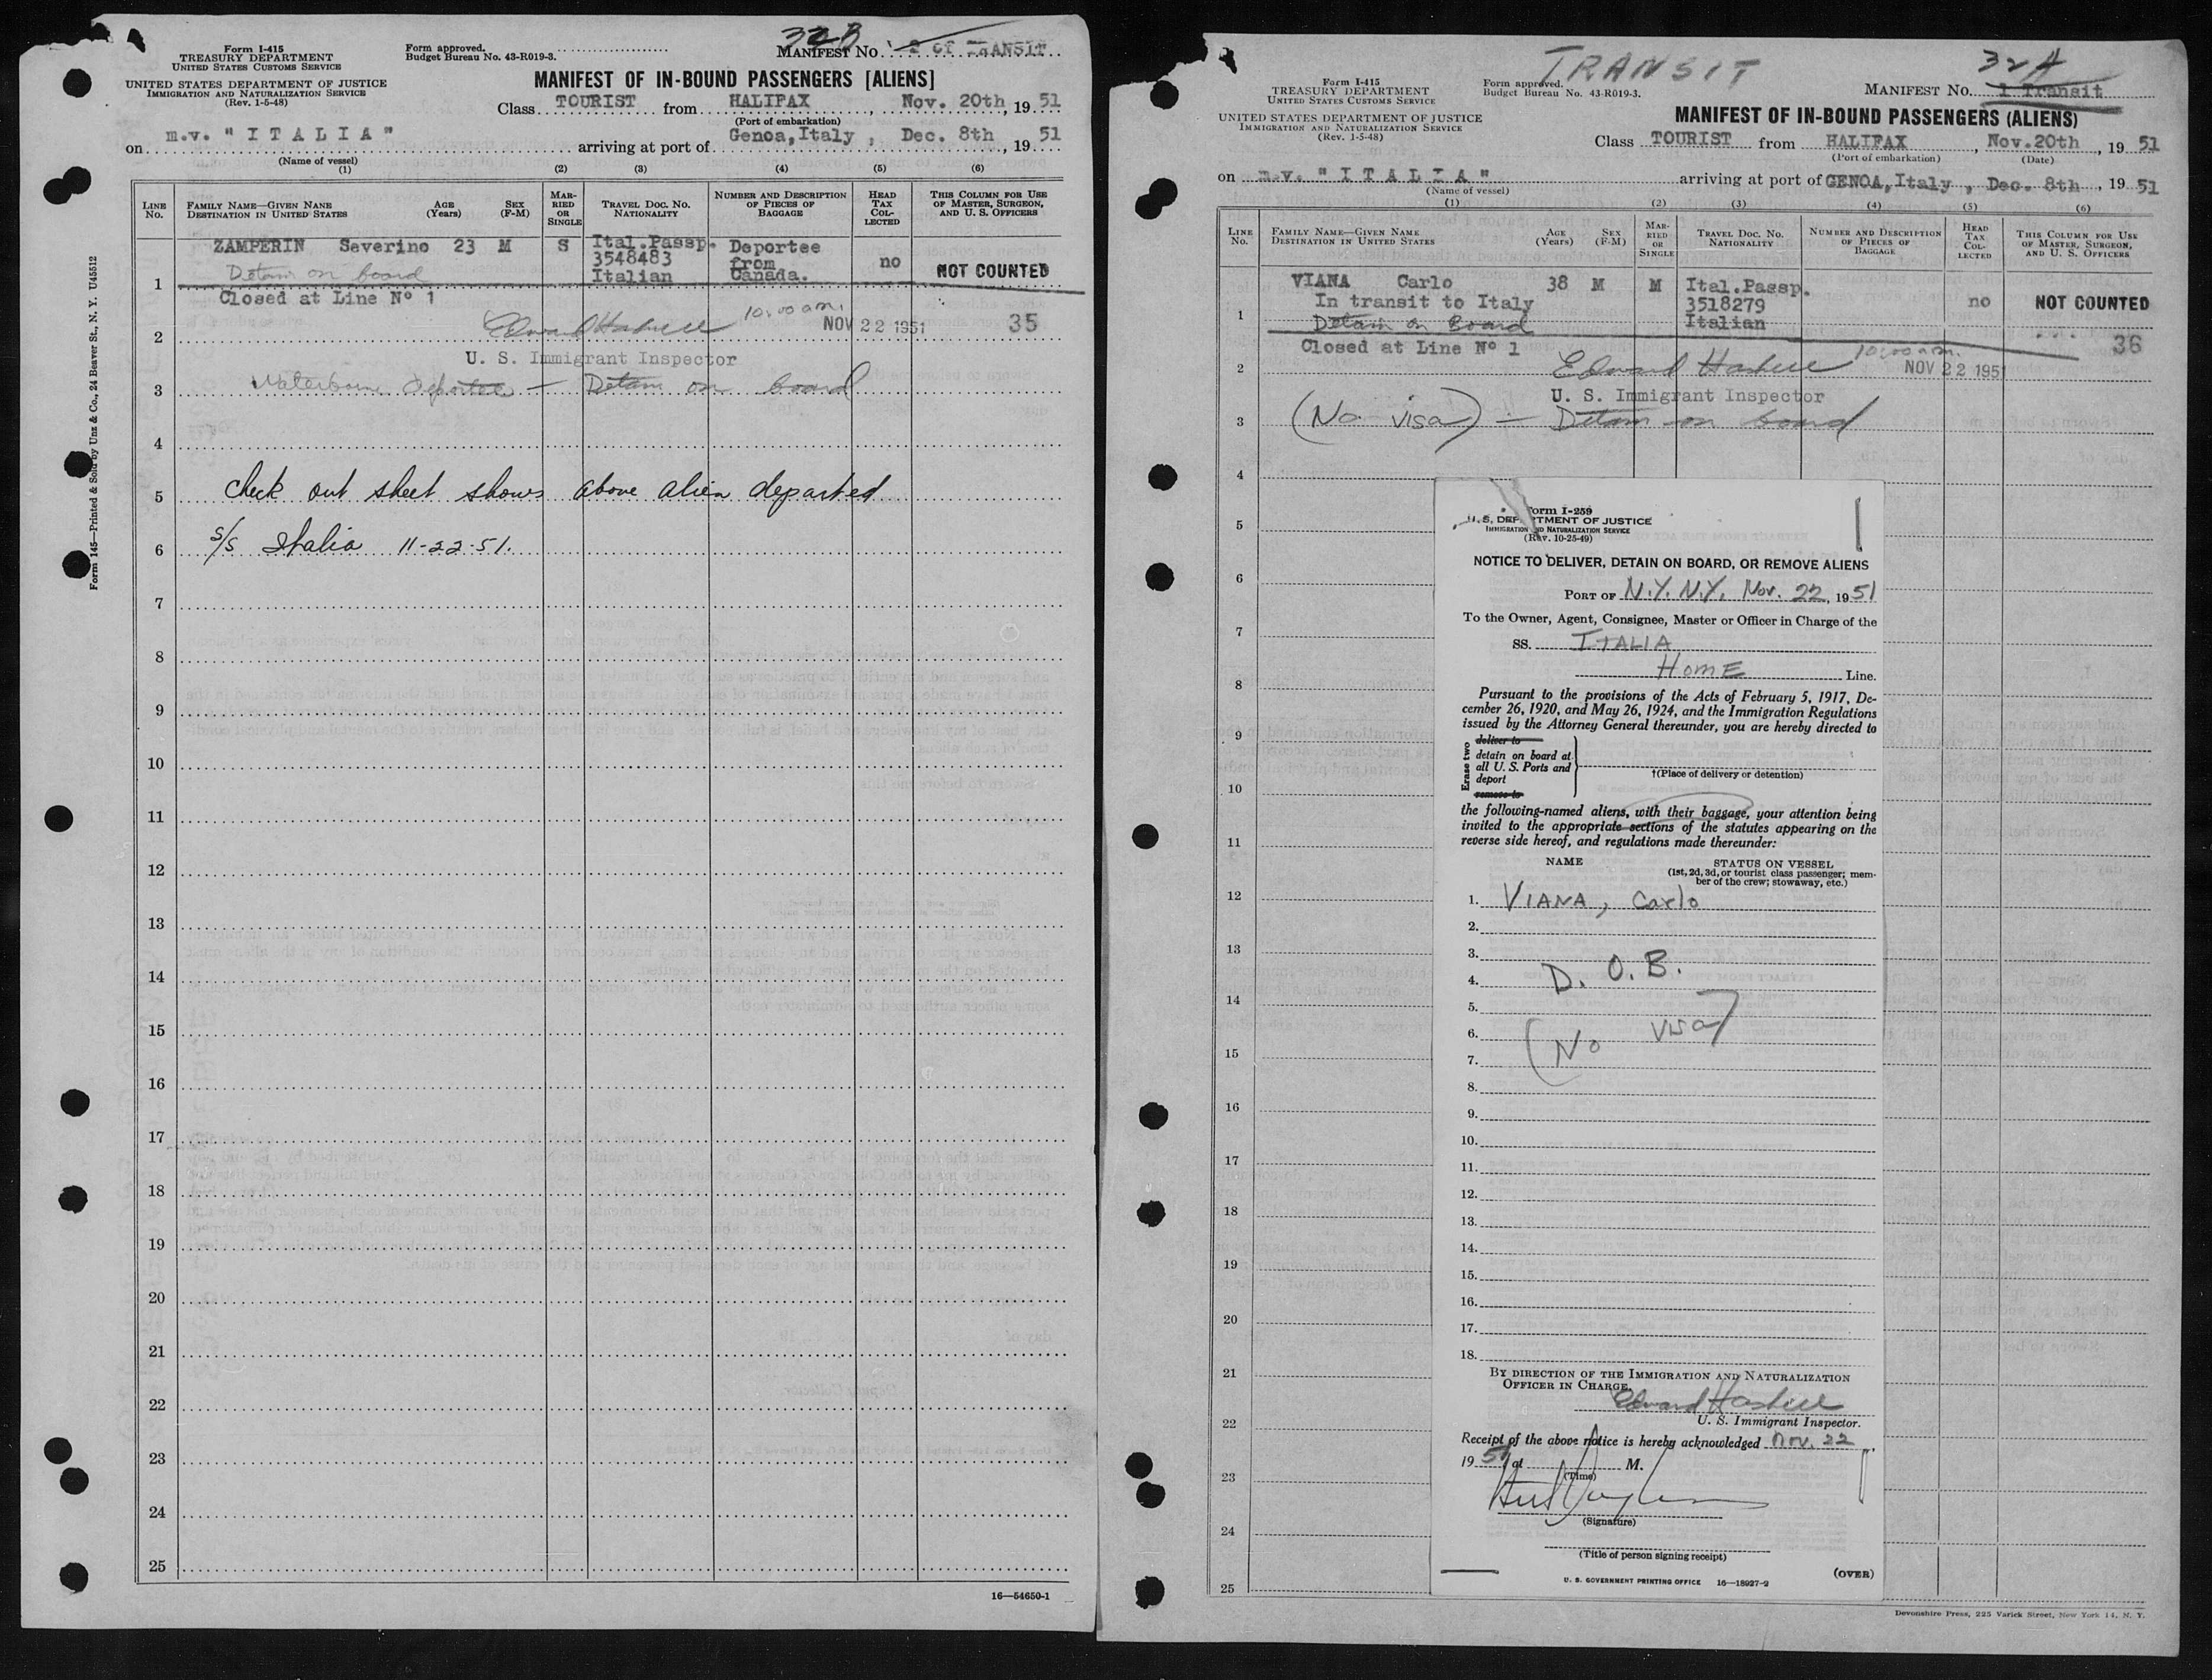 Form I-415
TREASURY DEPARTMENT
UNITED STATES CUSTOMS SERVICE
UNITED STATES DEPARTMENT OF JUSTICE
IMMIGRATION AND NATURALIZATION SERVICE
(Rev. 1-5-48)
Form approved.
Budget Bureau No. 43-R019-3.
32B
MANIFEST No. 2 of TRANSIT
MANIFEST OF IN-BOUND PASSENGERS [ALIENS]
Class TOURIST from HALIFAX, Nov. 20th 1951
(Port of embarkation)
on m.v. "ITALIA" arriving at port of Genoa, Italy, Dec. 8th, 1951
(Name of vessel)
(1) (2) (3) (4) (5) (6)
LINE No.
FAMILY NAME—GIVEN NANE
DESTINATION IN UNITED STATES
AGE (Years)
SEX (F-M)
MARRIED OR SINGLE
TRAVEL DOC. NO. NATIONALITY
NUMBER AND DESCRIPTION OF PIECES OF BAGGAGE
HEAD TAX COLLECTED
THIS COLUMN FOR USE OF MASTER, SURGEON, AND U. S. OFFICERS
ZAMPERIN Severino 23 M S Ital.Passp. Deportee
3548483 from no
Detain on board Italian Canada. NOT COUNTED
1
Closed at Line Nº 1
10:00 am.
Edward Haskell NOV 22 1951 35
2
U. S. Immigrant Inspector
3 Waterborne deportee — Detain on board
4
5 Check out sheet shows above alien departed
6 s/s Italia 11-22-51.
7
8
9
10
11
12
13
14
15
16
17
18
19
20
21
22
23
24
25
16—54650-1
Form 145—Printed & Sold by Unz & Co., 24 Beaver St., N. Y. U45512
TRANSIT
Form I-415
TREASURY DEPARTMENT
UNITED STATES CUSTOMS SERVICE
UNITED STATES DEPARTMENT OF JUSTICE
IMMIGRATION AND NATURALIZATION SERVICE
(Rev. 1-5-48)
Form approved.
Budget Bureau No. 43-R019-3.
32A
MANIFEST No. 1 Transit
MANIFEST OF IN-BOUND PASSENGERS (ALIENS)
Class TOURIST from HALIFAX, Nov.20th, 1951
(Port of embarkation) (Date)
on m.v. "ITALIA" arriving at port of GENOA, Italy, Dec. 8th, 1951
(Name of vessel)
(1) (2) (3) (4) (5) (6)
LINE No.
FAMILY NAME—GIVEN NAME
DESTINATION IN UNITED STATES
AGE (Years)
SEX (F-M)
MARRIED OR SINGLE
TRAVEL DOC. NO. NATIONALITY
NUMBER AND DESCRIPTION OF PIECES OF BAGGAGE
HEAD TAX COLLECTED
THIS COLUMN FOR USE OF MASTER, SURGEON, AND U. S. OFFICERS
VIANA Carlo 38 M M Ital.Passp.
In transit to Italy 3518279 no NOT COUNTED
1 Detain on Board Italian
Closed at Line Nº 1
10:00 am.
36
2 Edward Haskell NOV 22 1951
U. S. Immigrant Inspector
3 (No visa) — Detain on board
4
5
6
7
8
9
10
11
12
13
14
15
16
17
18
19
20
21
22
23
24
25
Form I-259
U. S. DEPARTMENT OF JUSTICE
IMMIGRATION AND NATURALIZATION SERVICE
(Rev. 10-25-49)
NOTICE TO DELIVER, DETAIN ON BOARD, OR REMOVE ALIENS
PORT OF N.Y. N.Y. Nov. 22, 1951
To the Owner, Agent, Consignee, Master or Officer in Charge of the
SS. ITALIA
HOME Line.
Pursuant to the provisions of the Acts of February 5, 1917, De-
cember 26, 1920, and May 26, 1924, and the Immigration Regulations
issued by the Attorney General thereunder, you are hereby directed to
Erase two
deliver to
detain on board at
all U. S. Ports and
deport
remove to
†(Place of delivery or detention)
the following-named aliens, with their baggage, your attention being
invited to the appropriate sections of the statutes appearing on the
reverse side hereof, and regulations made thereunder:
NAME STATUS ON VESSEL
(1st, 2d, 3d, or tourist class passenger; mem-
ber of the crew; stowaway, etc.)
1. VIANA, Carlo
2.
3.
4. D. O. B.
5.
6. (No visa)
7.
8.
9.
10.
11.
12.
13.
14.
15.
16.
17.
18.
BY DIRECTION OF THE IMMIGRATION AND NATURALIZATION
OFFICER IN CHARGE
Edward Haskell
U. S. Immigrant Inspector.
Receipt of the above notice is hereby acknowledged Nov. 22,
1951, at M.
(Time)
(Signature)
(Title of person signing receipt)
U. S. GOVERNMENT PRINTING OFFICE 16—18927-2
(OVER)
Devonshire Press, 225 Varick Street, New York 14, N. Y.